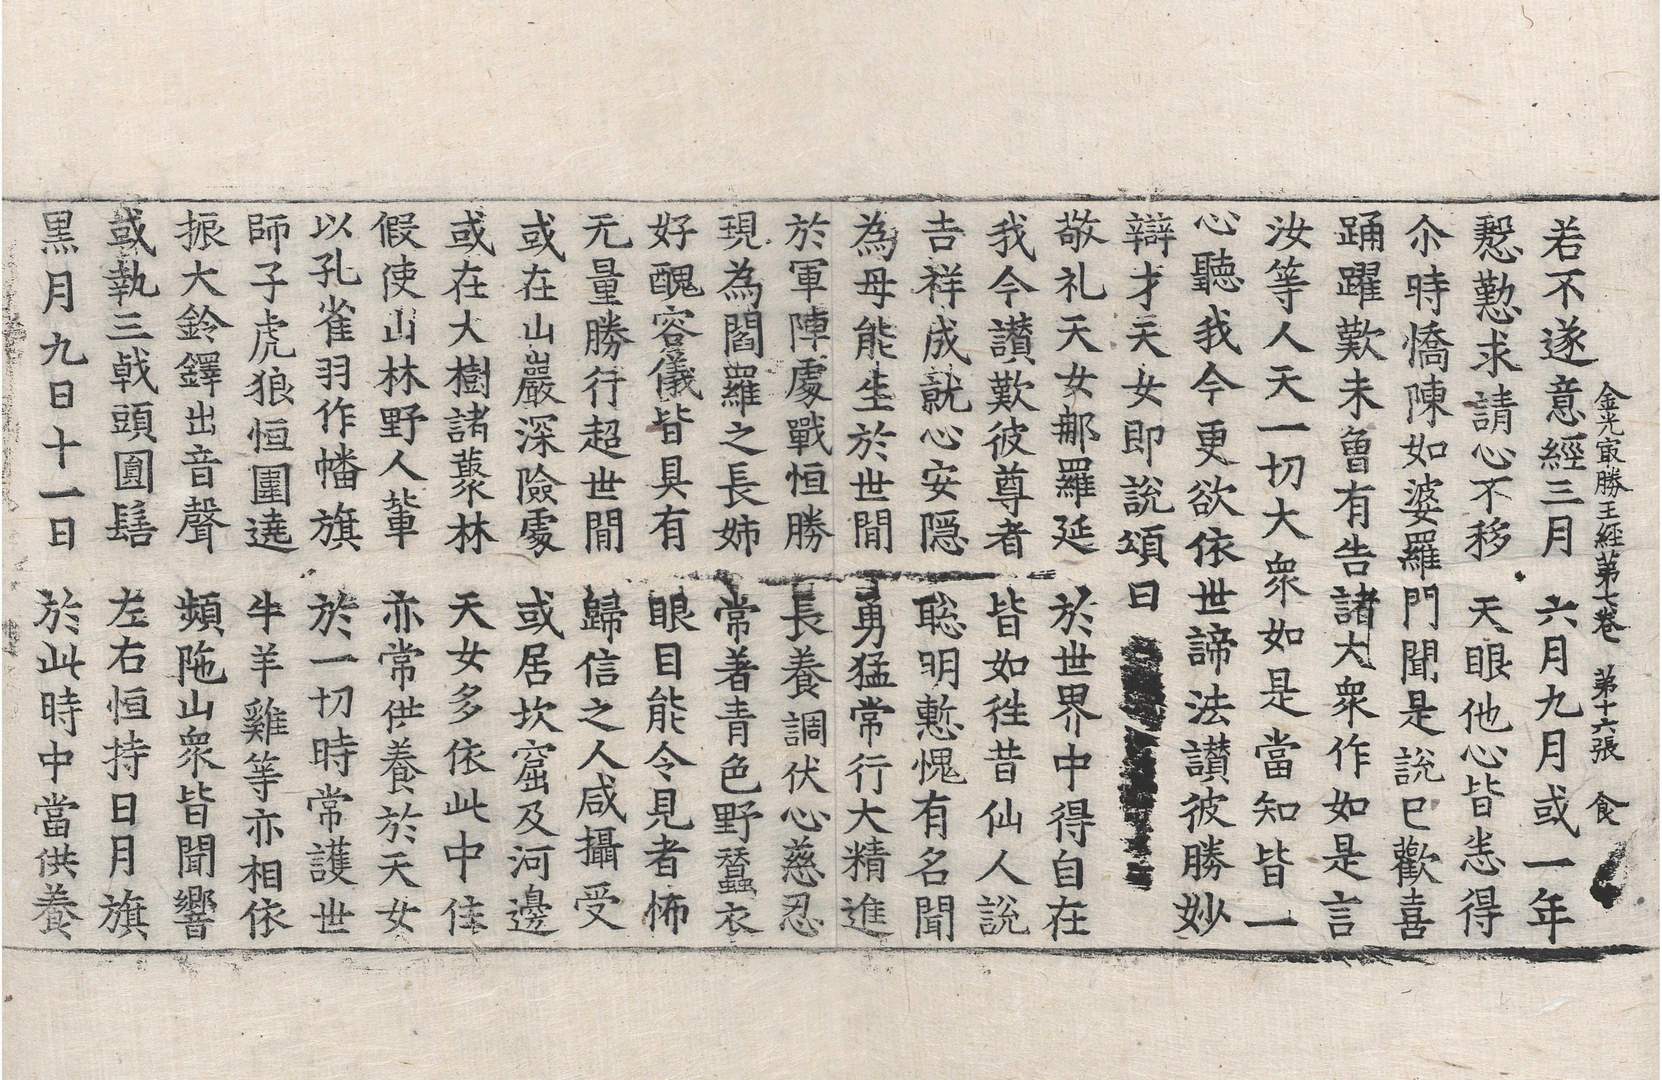 金光冣勝王經第七卷　第十六張　食
若不遂意經三月　六月九月或一年
慇懃求請心不移　天眼他心皆悉得
尒時憍陳如婆羅門聞是說已歡喜
踊躍歎未曾有告諸大衆作如是言
汝等人天一切大衆如是當知皆一
心聽我今更欲依世諦法讃彼勝妙
辯才天女即說頌曰
敬礼天女那羅延　於世界中得自在
我今讃歎彼尊者　皆如徃昔仙人說
吉祥成就心安隱　聡明慙愧有名聞
為母能生於世閒　勇猛常行大精進
於軍陣處戰恒勝　長養調伏心慈忍
現為閻羅之長姉　常著青色野蠶衣
好醜容儀皆具有　眼目能令見者怖
无量勝行超世閒　歸信之人咸攝受
或在山巖深險處　或居坎窟及河邊
或在大樹諸藂林　天女多依此中住
假使山林野人軰　亦常供養於天女
以孔雀羽作幡旗　於一切時常護世
師子虎狼恒圍遶　牛羊雞等亦相依
振大鈴鐸出音聲　頻陁山衆皆聞響
或執三戟頭圓髻　左右恒持日月旗
黒月九日十一日　於此時中當供養